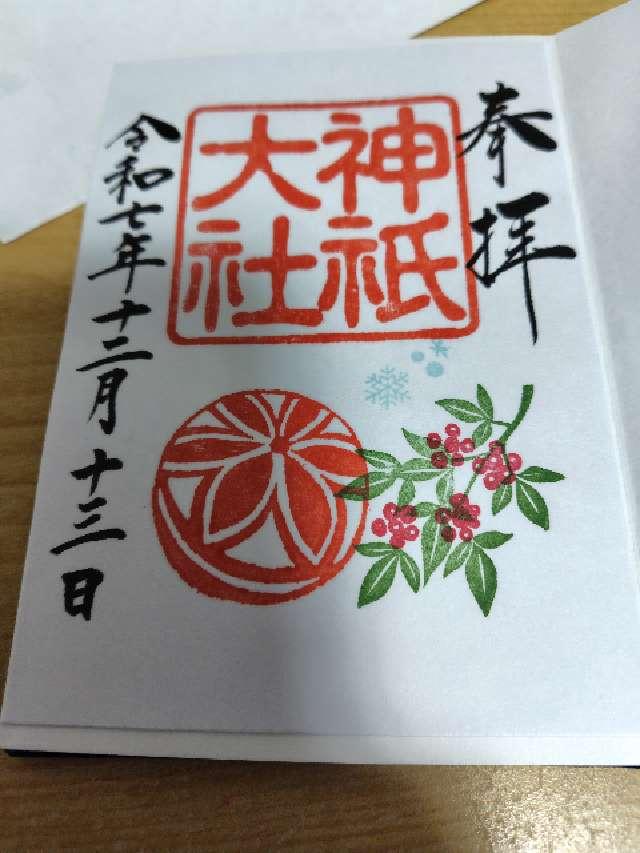 奉拝
神祇
大社
令和七年十二月十三日